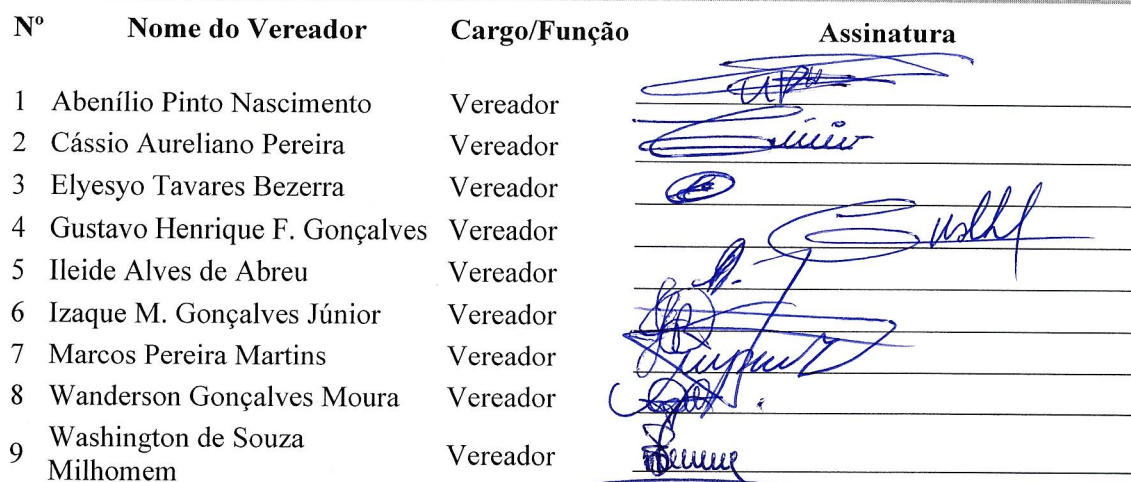 Nº Nome do Vereador Cargo/Função Assinatura
1 Abenílio Pinto Nascimento Vereador
2 Cássio Aureliano Pereira Vereador
3 Elyesyo Tavares Bezerra Vereador
4 Gustavo Henrique F. Gonçalves Vereador
5 Ileide Alves de Abreu Vereador
6 Izaque M. Gonçalves Júnior Vereador
7 Marcos Pereira Martins Vereador
8 Wanderson Gonçalves Moura Vereador
9 Washington de Souza Vereador
Milhomem